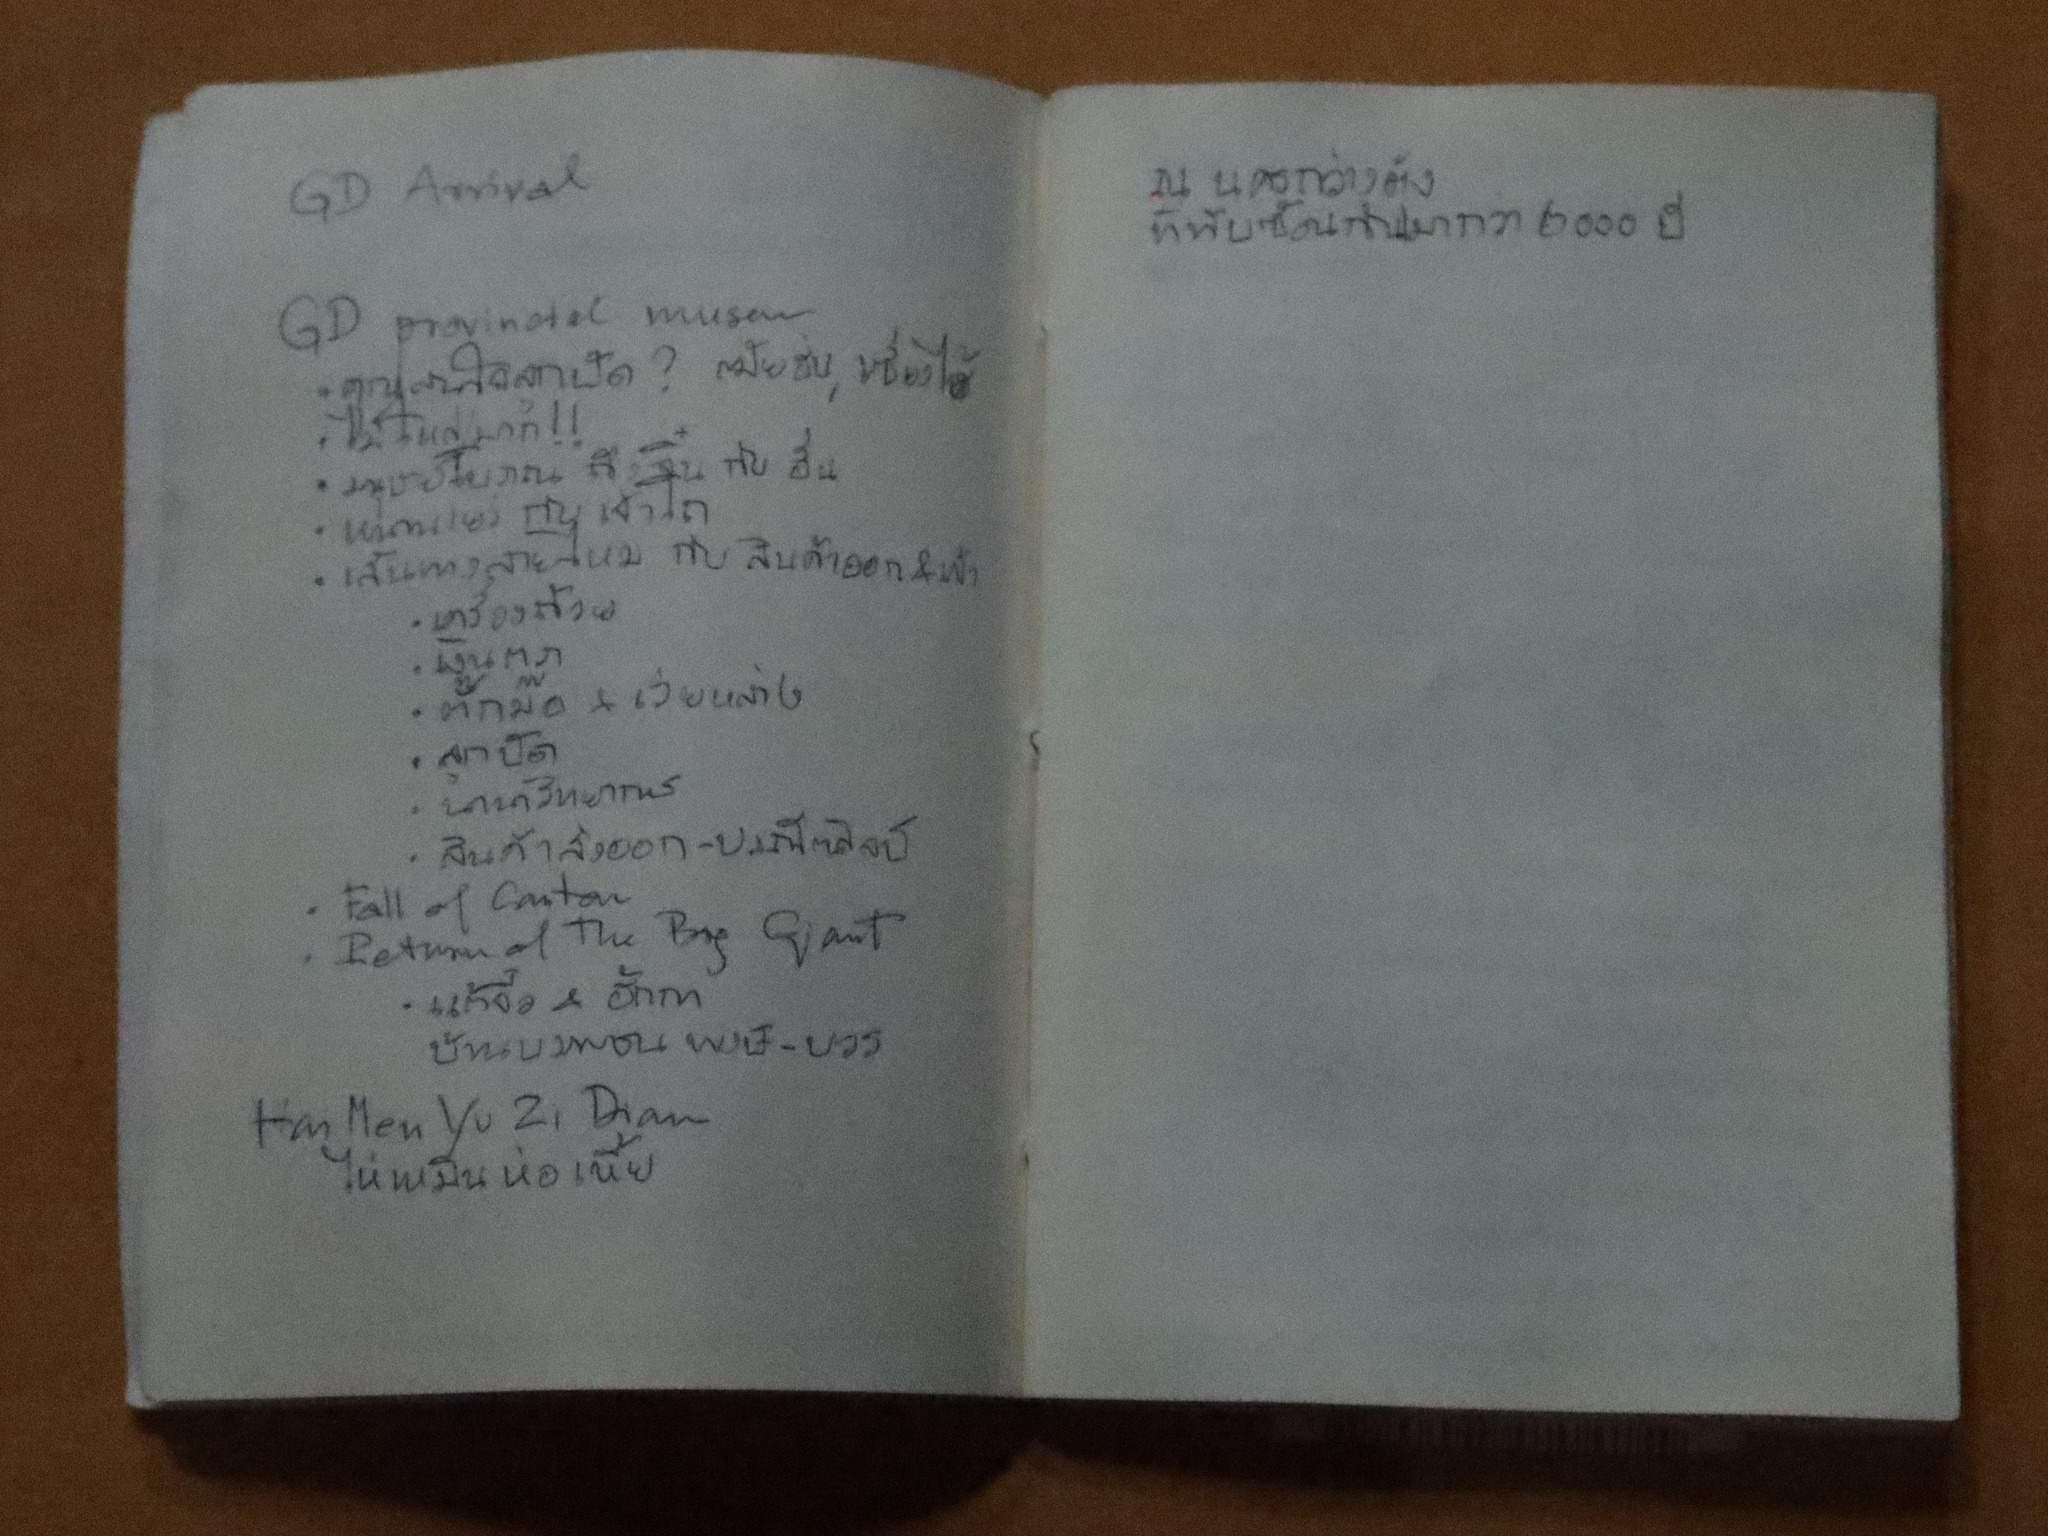 GD Arrival
GD provincial museum
• คุณสนใจลูกปัด? สมัยฮั่น,
• ไม้ใหญ่มาก!!
• มนุษย์โบราณ ถึง จิ๋น กับ ฮั่น
• หนานเยว่ กับ เจ้าโถ
• เส้นทางสายไหม กับ สินค้าออก & เข้า
• เครื่องถ้วย
• เงินตรา
• ตั๊กม๊อ & เว่ยหล่าง
• ลูกปัด
• นานาวิทยาการ
• สินค้าส่งออก-ประณีตศิลป์
• Fall of Canton
• Return of The Big Giant
• แต้จิ๋ว & ฮักกา
บ้านบรรพชน
Hai Men Yu Zi Dian
ไห่เหมินห่อเหี้ย
ณ นครกว่างตุ้ง
ที่ทับซ้อนกันมากว่า 6000 ปี